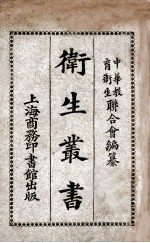 中華教
育衛生
聯合會編纂
衛生叢書
上海商務印書館出版